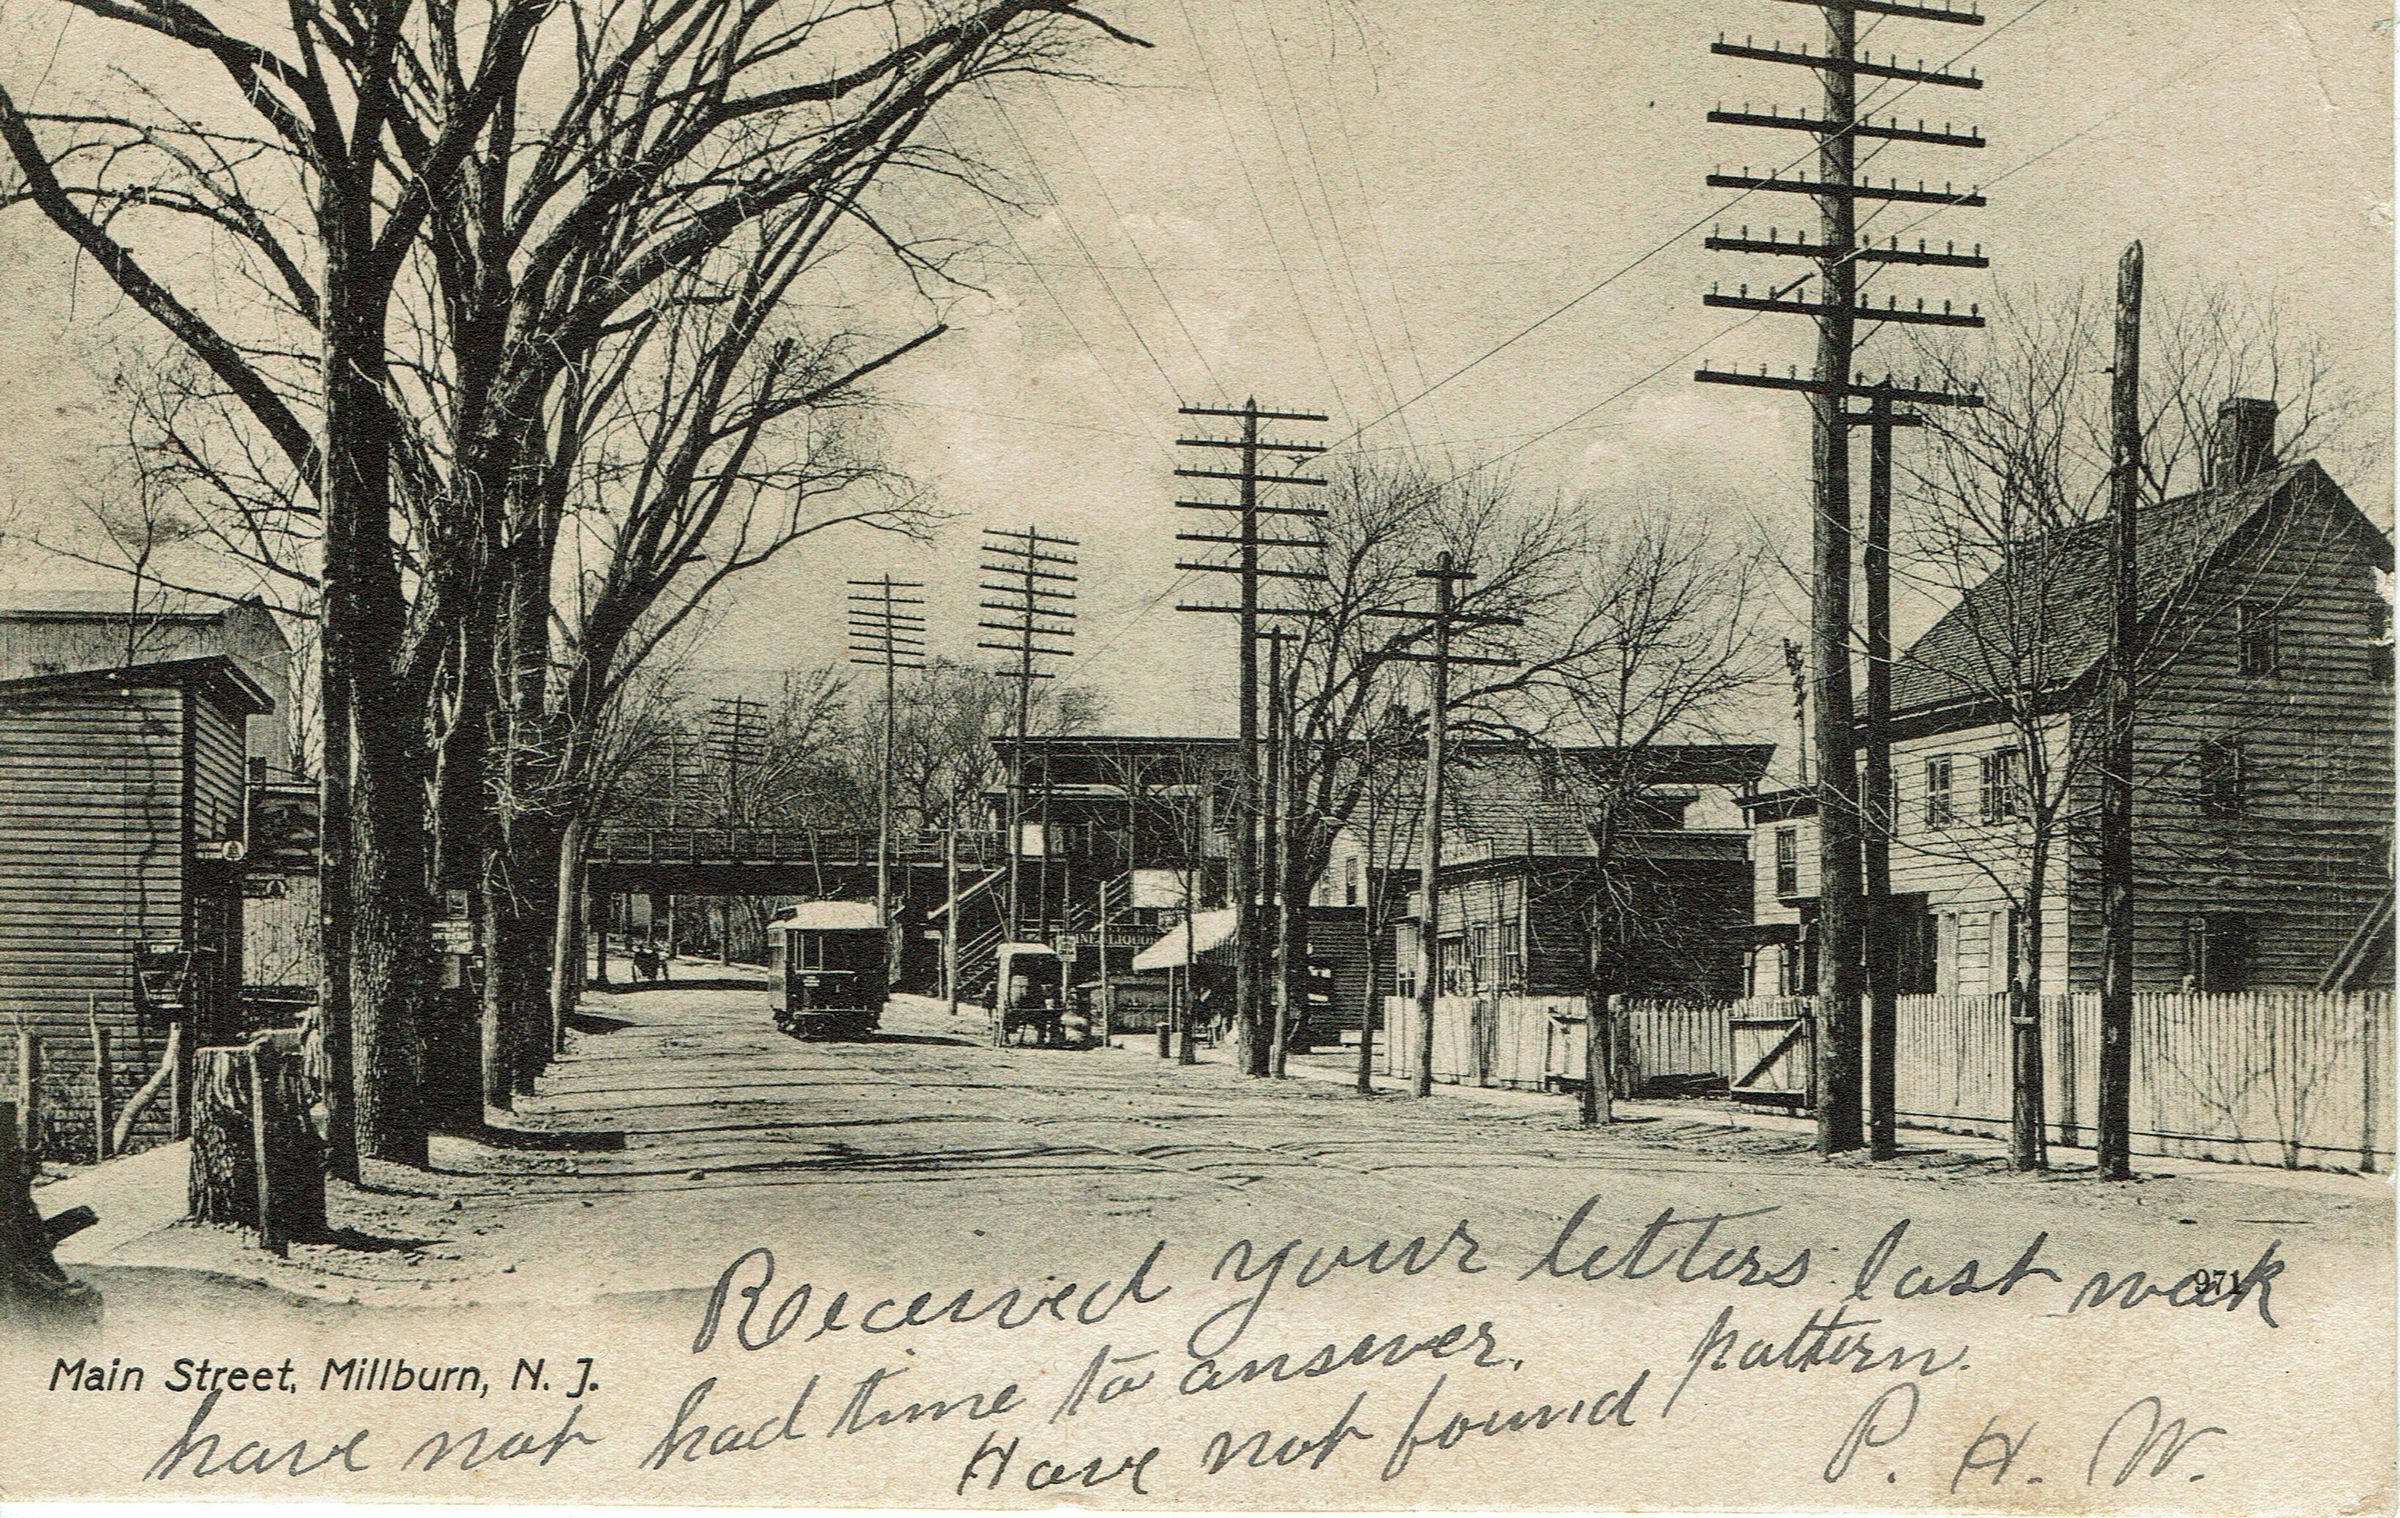 LIQUO
Received your letters last week
971
Main Street, Millburn, N. J.
have not had time to answer.
Have not found pattern.
P. H. W.